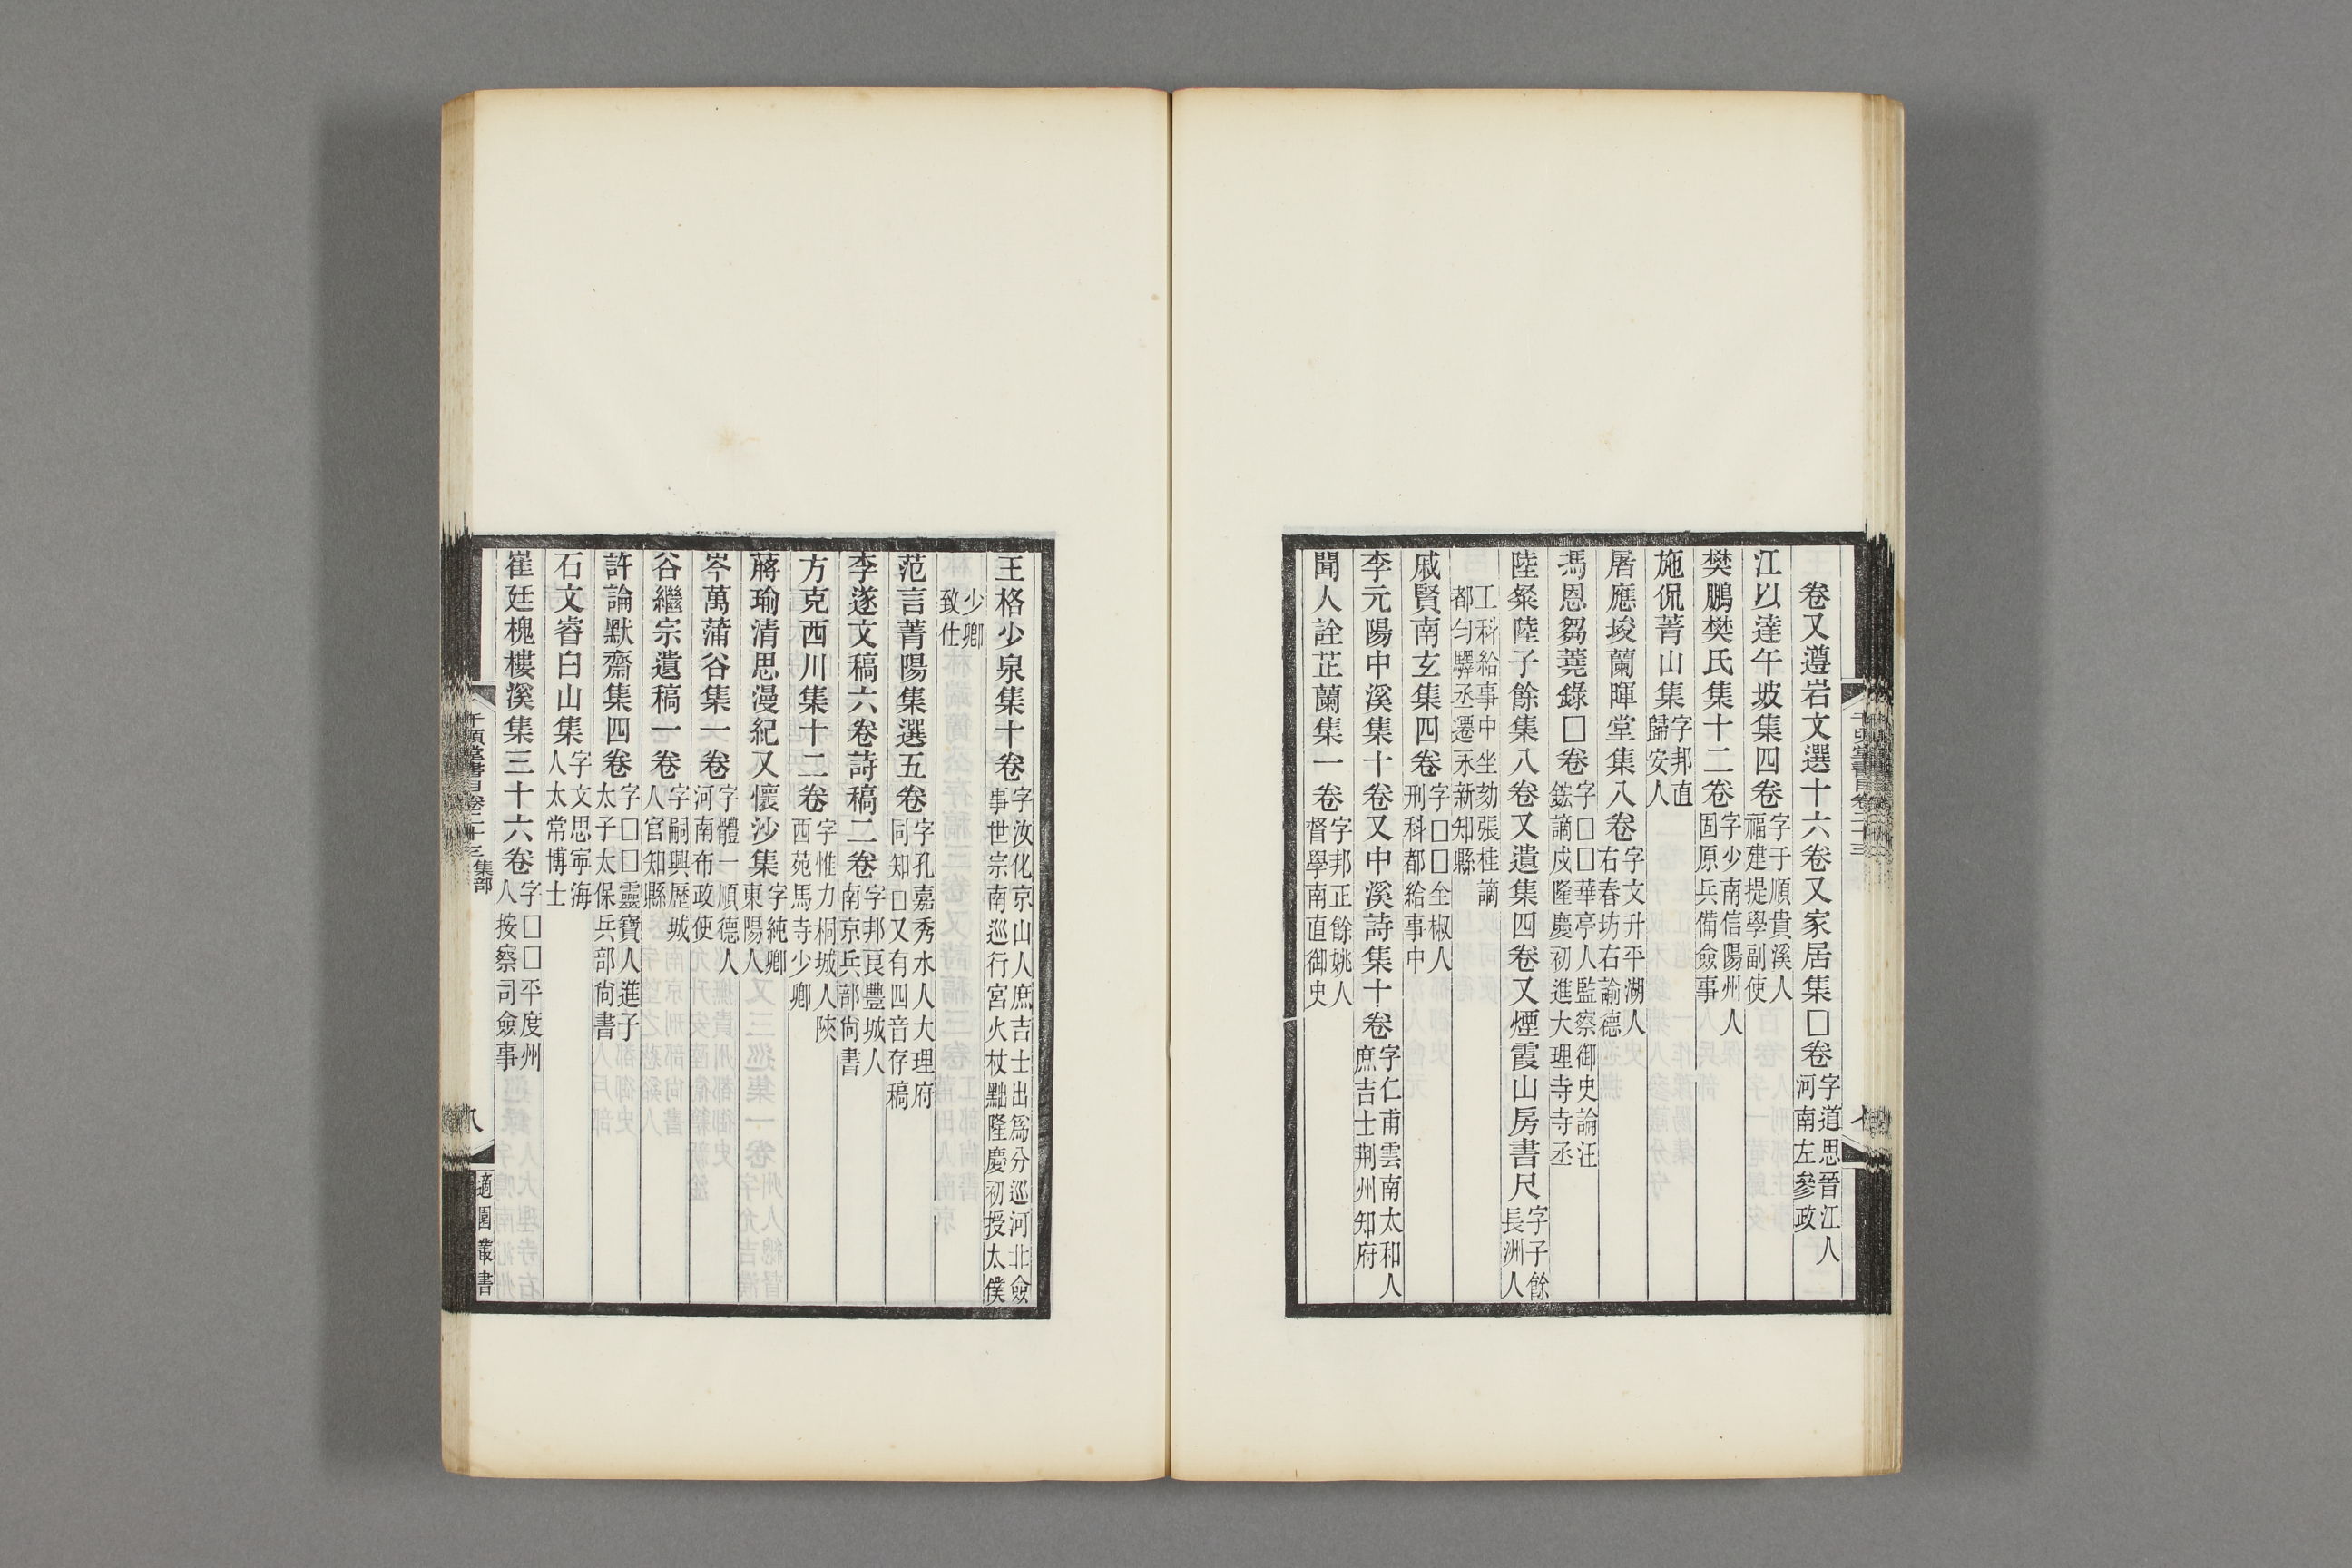 卷又遵岩文選十六卷又家居集□卷字道思晉江人河南左參政
江以達午坡集四卷字于順貴溪人福建提學副使
樊鵬樊氏集十二卷字少南信陽州人固原兵備僉事
施侃菁山集字邦直歸安人
屠應埈蘭暉堂集八卷字文升平湖人右春坊右諭德
馮恩芻蕘錄□卷字□□華亭人監察御史論汪鋐謫戍隆慶初進大理寺寺丞
陸粲陸子餘集八卷又遺集四卷又煙霞山房書尺字子餘長洲人
工科給事中坐劾張桂謫都勻驛丞遷永新知縣
戚賢南玄集四卷字□□全椒人刑科都給事中
李元陽中溪集十卷又中溪詩集十卷字仁甫雲南太和人庶吉士荆州知府
聞人詮芷蘭集一卷字邦正餘姚人督學南直御史
千頃堂書目卷二十三
七
王格少泉集十卷字汝化京山人庶吉士出爲分巡河北僉事世宗南巡行宮火杖黜隆慶初授太僕
少卿致仕
范言菁陽集選五卷字孔嘉秀水人大理府同知□又有四音存稿
李遂文稿六卷詩稿二卷字邦良豐城人南京兵部尙書
方克西川集十二卷字惟力桐城人陝西苑馬寺少卿
蔣瑜清思漫紀又懷沙集字純卿東陽人
岑萬蒲谷集一卷字體一順德人河南布政使
谷繼宗遺稿一卷字嗣興歷城人官知縣
許論默齋集四卷字□□靈寶人進子太子太保兵部尙書
石文睿白山集字文思寧海人太常博士
崔廷槐樓溪集三十六卷字□□平度州人按察司僉事
千頃堂書目卷二十三 集部
八
適園叢書